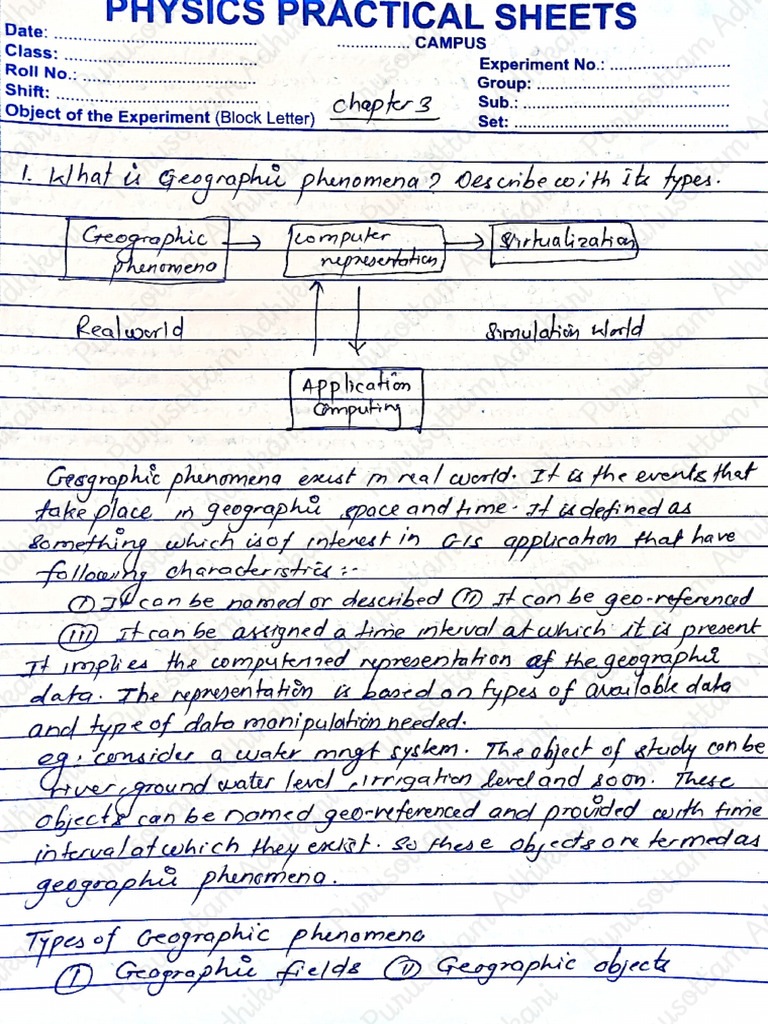 PHYSICS PRACTICAL SHEETS
Date: ............................
............... CAMPUS
Class: ............................
Experiment No.: ............................
Roll No.: ............................
Group: ............................
Shift: ............................
Sub.: ............................
Object of the Experiment (Block Letter) chapter 3
Set: ............................
1. What is Geographic phenomena? Describe with its types.
Geographic phenomena → computer representation → Virtualization
Real world
Simulation World
Application computing
Geographic phenomena exist in real world. It is the events that
take place in geographic space and time. It is defined as
something which is of interest in GIS application that have
following characteristics :-
(i) It can be named or described (ii) It can be geo-referenced
(iii) It can be assigned a time interval at which it is present
It implies the computerized representation of the geographic
data. The representation is based on types of available data
and type of data manipulation needed.
eg: consider a water mngt system. The object of study can be
river, ground water level, irrigation level and so on. These
objects can be named geo-referenced and provided with time
interval at which they exist. So these objects are termed as
geographic phenomena.
Types of Geographic phenomena
(I) Geographic fields (ii) Geographic objects
Purusottam Adhikari